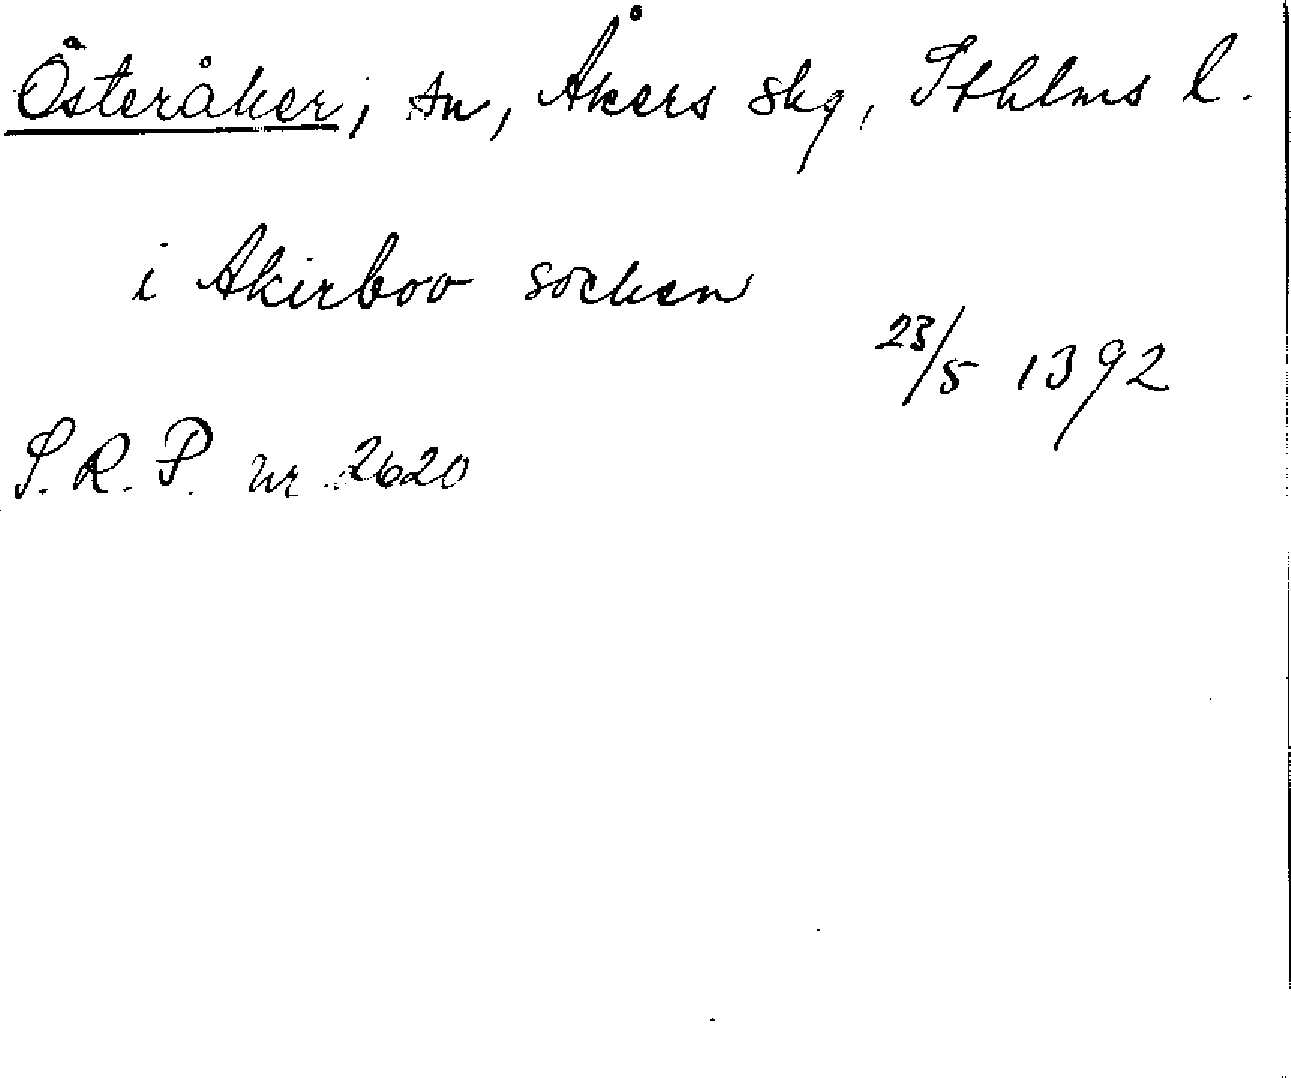 Österåker, sn, Åkers skg, Sthlms l.
i Akirboo socken
23/5 1392
S.R.P. nr 2620